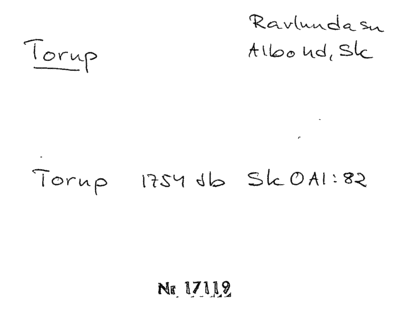 Torup
Ravlunda sn
Albo hd, Sk
Torup 1754 db Sk O AI:82
Nr 17119